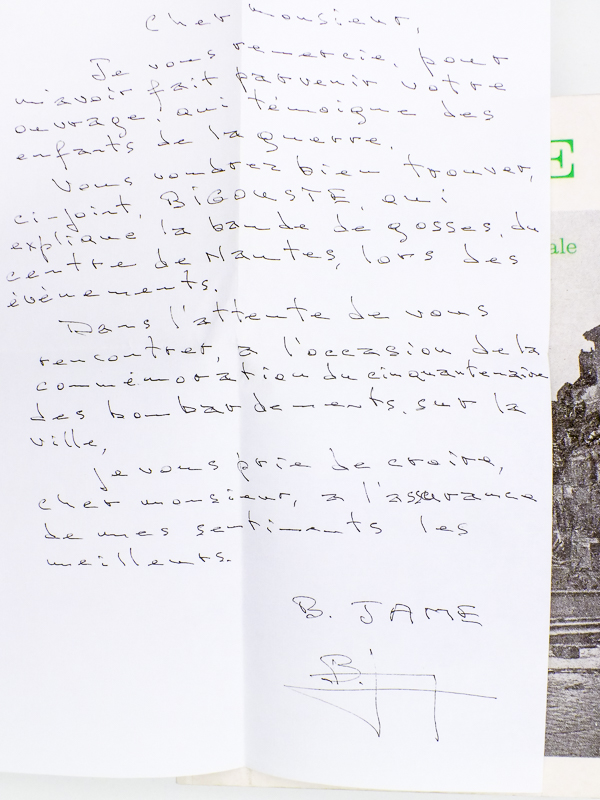 Cher monsieur,
Je vous remercie, pour
m'avoir fait parvenir votre
ouvrage; qui témoigne des
enfants de la guerre.
Vous voudrez bien trouver,
ci-joint, BIGOUSTE, qui
explique la bande de gosses, du
centre de Nantes, lors des
évènements.
Dans l'attente de vous
rencontrer, a l'occasion de la
commémoration du cinquantenaire
des bombardements. sur la
ville,
Je vous prie de croire,
cher monsieur, a l'assurance
de mes sentiments les
meilleurs.
B. JAME
B. J
E
ale